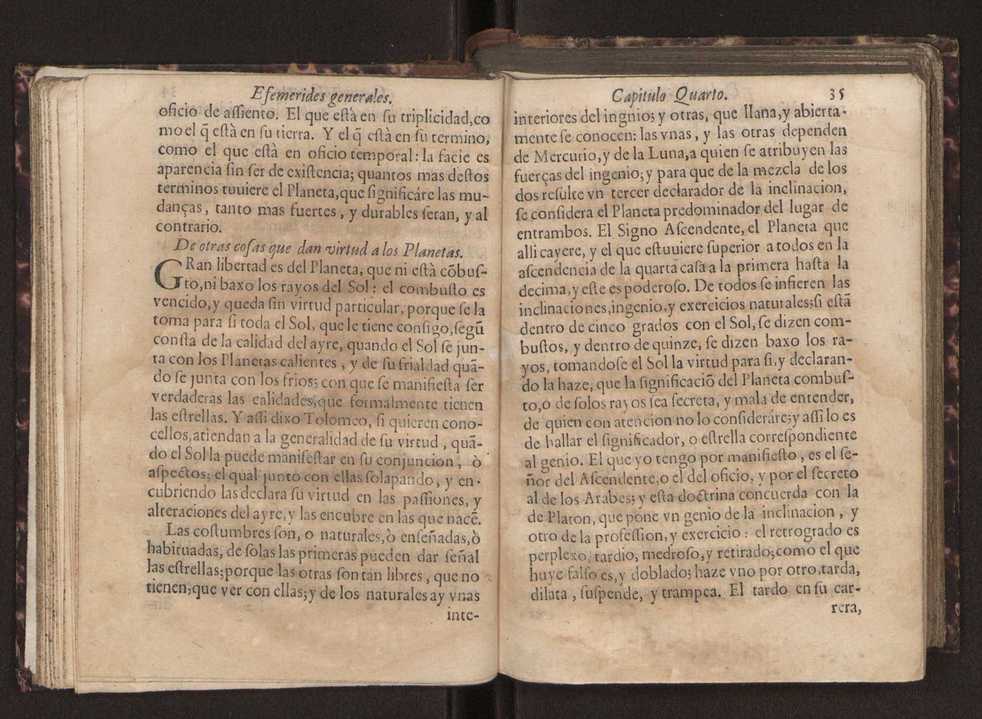 Efemerides generales.
oficio de aſſiento. El que eſtà en ſu triplicidad,co
mo el q̃ eſtà en ſu tierra. Y el q̃ eſtà en ſu termino,
como el que eſtà en oficio temporal: la facie es
aparencia ſin ſer de exiſtencia; quantos mas deſtos
terminos tuuiere el Planeta,que ſignificáre las mu-
danças, tanto mas fuertes, y durables ſeran, y al
contrario.
De otras coſas que dan virtud a los Planetas.
GRan libertad es del Planeta, que ni eſtà cõbuſ-
to,ni baxo los rayos del Sol: el combuſto es
vencido,y queda ſin virtud particular, porque ſe la
toma para ſi toda el Sol, que le tiene conſigo,ſegũ
conſta de la calidad del ayre, quando el Sol ſe jun-
ta con los Planetas calientes, y de ſu frialdad quã-
do ſe junta con los frios; con que ſe manifieſta ſer
verdaderas las calidades,que formalmente tienen
las eſtrellas. Y aſſi dixo Tolomeo, ſi quieren cono-
cellos,atiendan a la generalidad de ſu virtud, quã-
do el Sol la puede manifeſtar en ſu conjuncion, ò
aſpectos; el qual junto con ellas ſolapando, y en-
cubriendo las declara ſu virtud en las paſſiones, y
alteraciones del ayre,y las encubre en las que nacẽ.
Las coſtumbres ſon, o naturales,ò enſeñadas,ò
habituadas, de ſolas las primeras pueden dar ſeñal
las eſtrellas;porque las otras ſon tan libres, que no
tienen;que ver con ellas;y de los naturales ay vnas
inte-
Capitulo Quarto. 35
interiores del ingnio; y otras, que llana,y abierta-
mente ſe conocen: las vnas, y las otras dependen
de Mercurio,y de la Luna,a quien ſe atribuyen las
fuerças del ingenio; y para que de la mezcla de los
dos reſulte vn tercer declarador de la inclinacion,
ſe conſidera el Planeta predominador del lugar de
entrambos. El Signo Aſcendente, el Planeta que
alli cayere, y el que eſtuuiere ſuperior a todos en la
aſcendencia de la quarta caſa a la primera haſta la
decima,y eſte es poderoſo. De todos ſe infieren las
inclinaciones,ingenio,y exercicios naturales;ſi eſtã
dentro de cinco grados con el Sol, ſe dizen com-
buſtos, y dentro de quinze, ſe dizen baxo los ra-
yos, tomandoſe el Sol la virtud para ſi,y declaran-
do la haze, que la ſignificaciõ del Planeta combuſ-
to,o de ſolos rayos ſea ſecreta, y mala de entender,
de quien con atencion no lo conſiderâre;y aſſi lo es
de hallar el ſignificador, o eſtrella correſpondiente
al genio. El que yo tengo por manifieſto, es el ſe-
ñor del Aſcendente,o el del oficio, y por el ſecreto
al de los Arabes; y eſta doctrina concuerda con la
de Platon, que pone vn genio de la inclinacion, y
otro de la profeſſion,y exercicio: el retrogrado es
perplexo, tardio, medroſo,y retirado;como el que
huye falſo es,y doblado; haze vno por otro,tarda,
dilata, ſuſpende, y trampea. El tardo en ſu car-
rera,